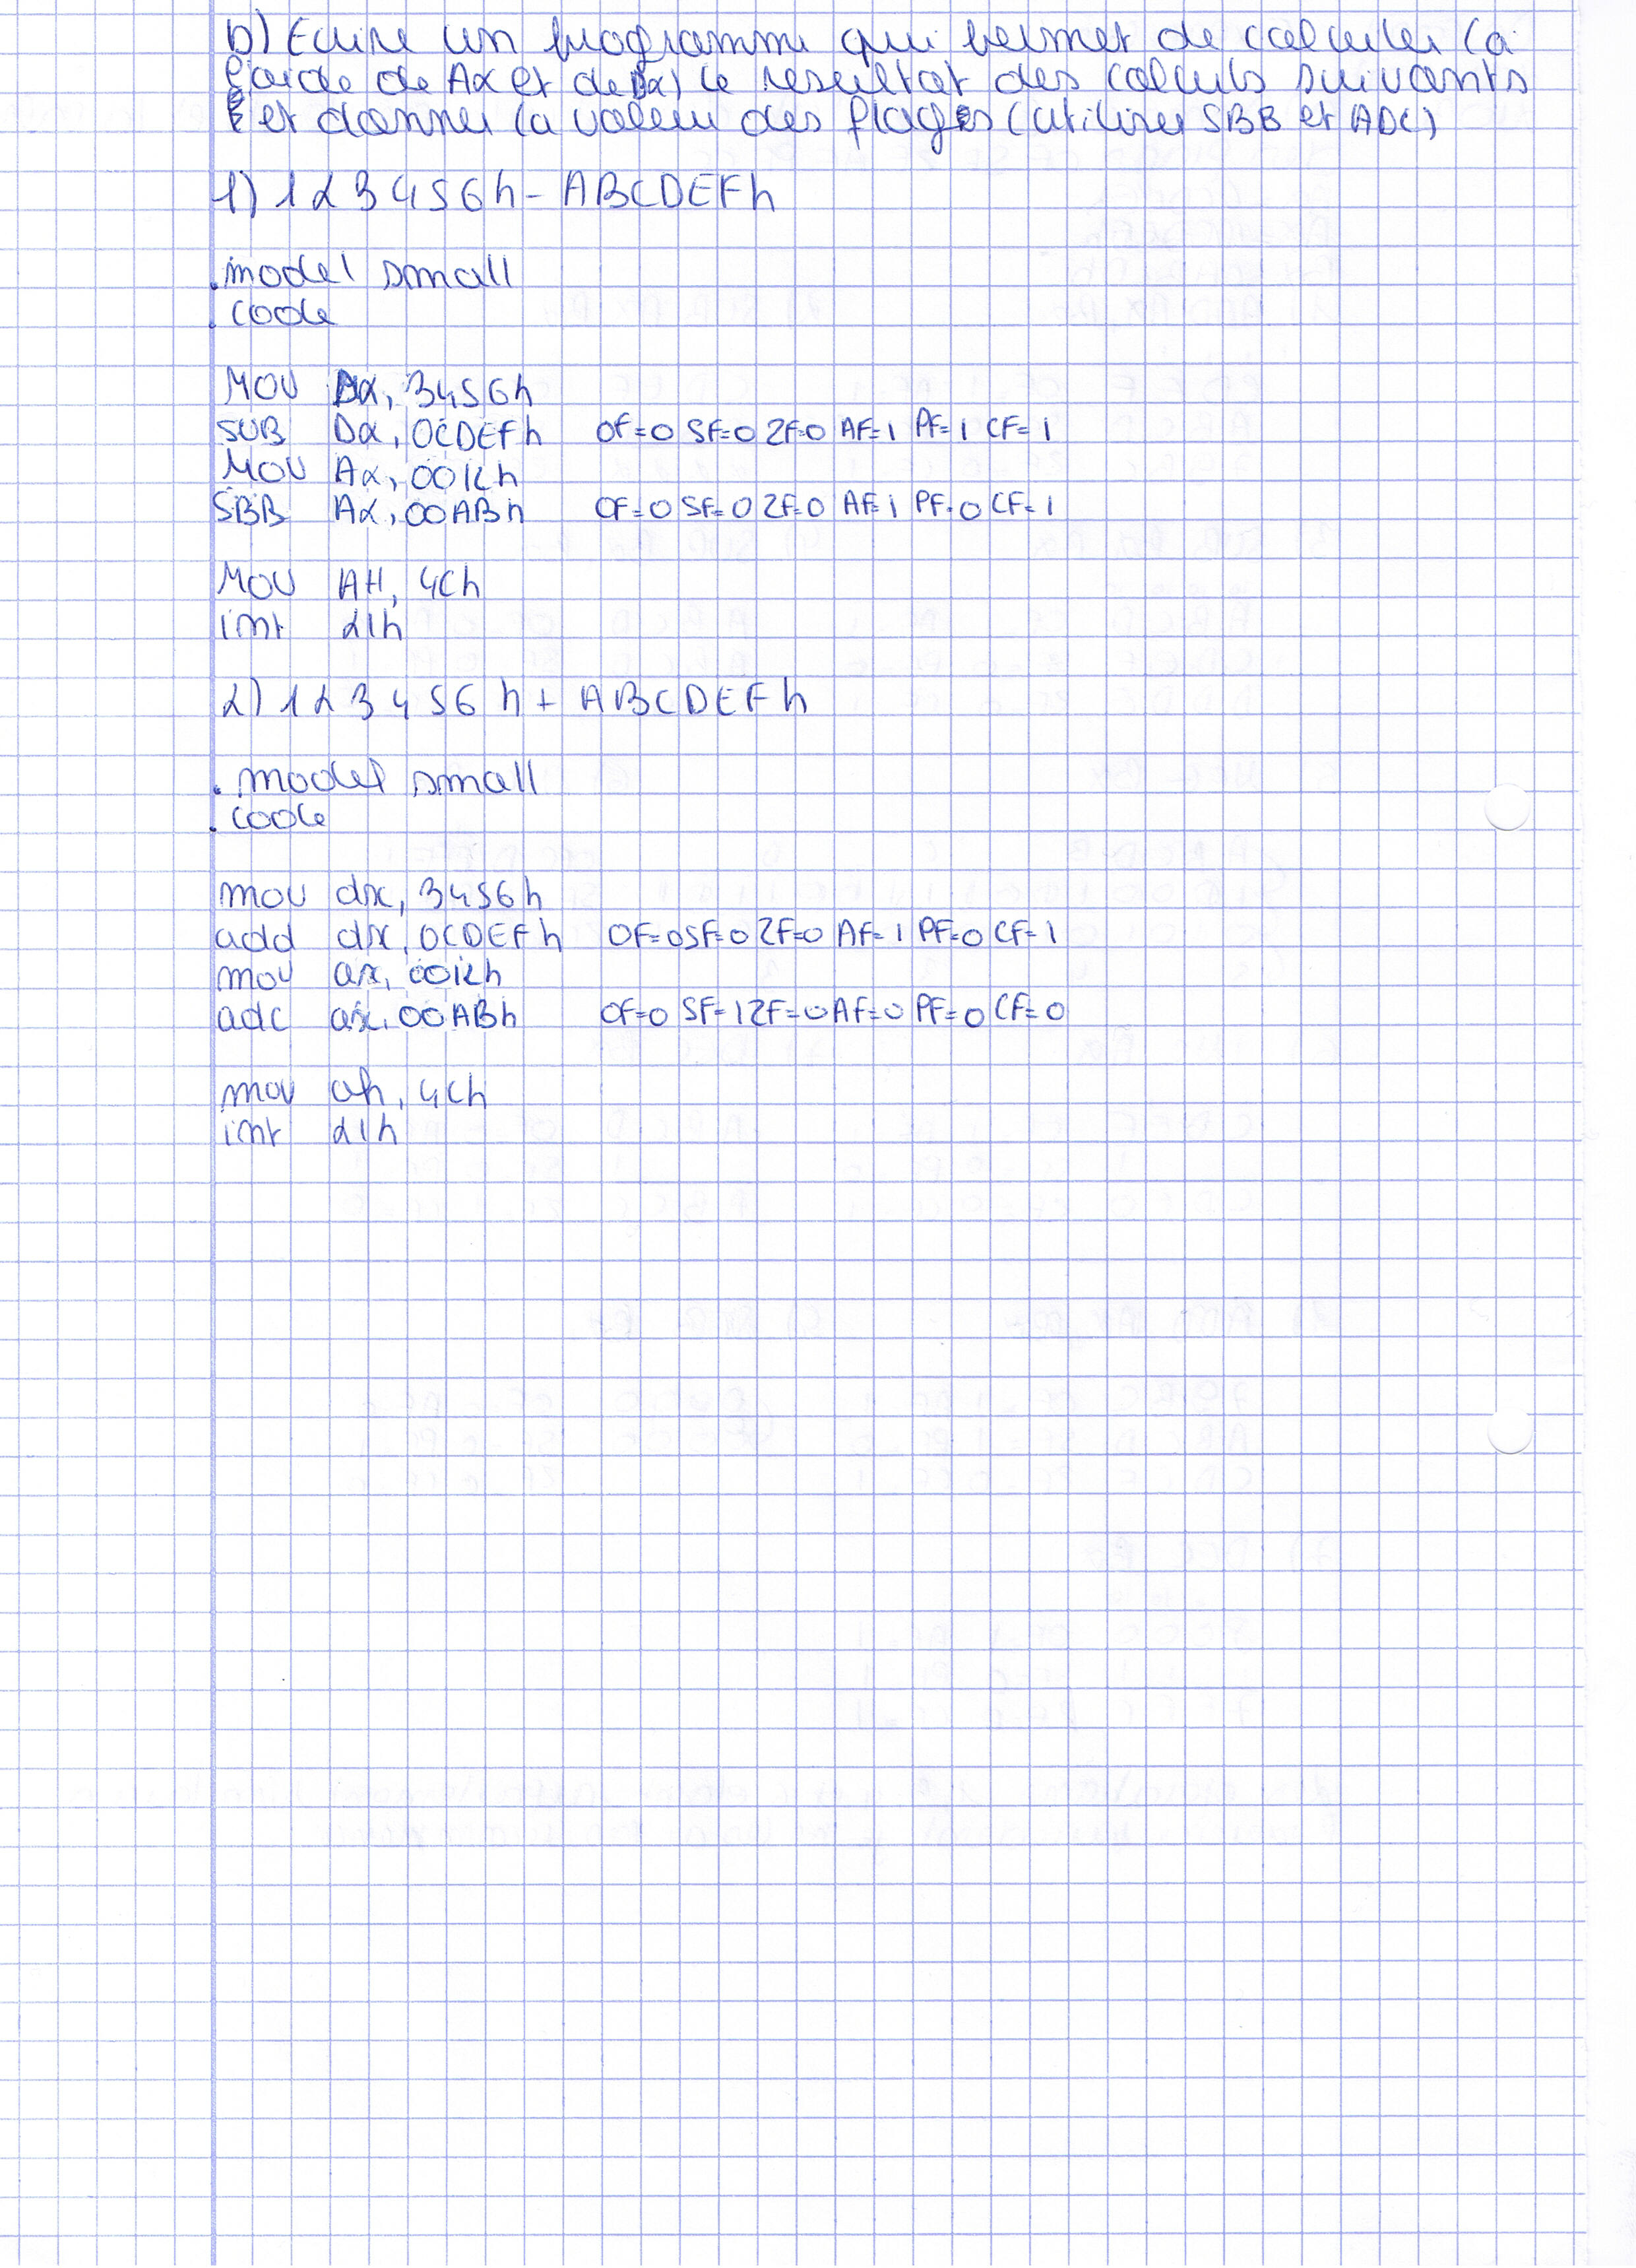 b) Ecrire un programme qui permet de calculer (à
l'aide de Ax et de Dx) le resultat des calculs suivants
et donner la valeur des flags (utiliser SBB et ADC)
1) 123456h - ABCDEFh
.model small
.code
MOV Dx, 3456h
SUB Dx, 0CDEFh OF=0 SF=0 ZF=0 AF=1 PF=1 CF=1
MOV Ax, 0012h
SBB Ax, 00ABh OF=0 SF=0 ZF=0 AF=1 PF=0 CF=1
MOV AH, 4Ch
int 21h
2) 123456h + ABCDEFh
.model small
.code
mov dx, 3456h
add dx, 0CDEFh OF=0 SF=0 ZF=0 AF=1 PF=0 CF=1
mov ax, 0012h
adc ax, 00ABh OF=0 SF=1 ZF=0 AF=0 PF=0 CF=0
mov ah, 4Ch
int 21h